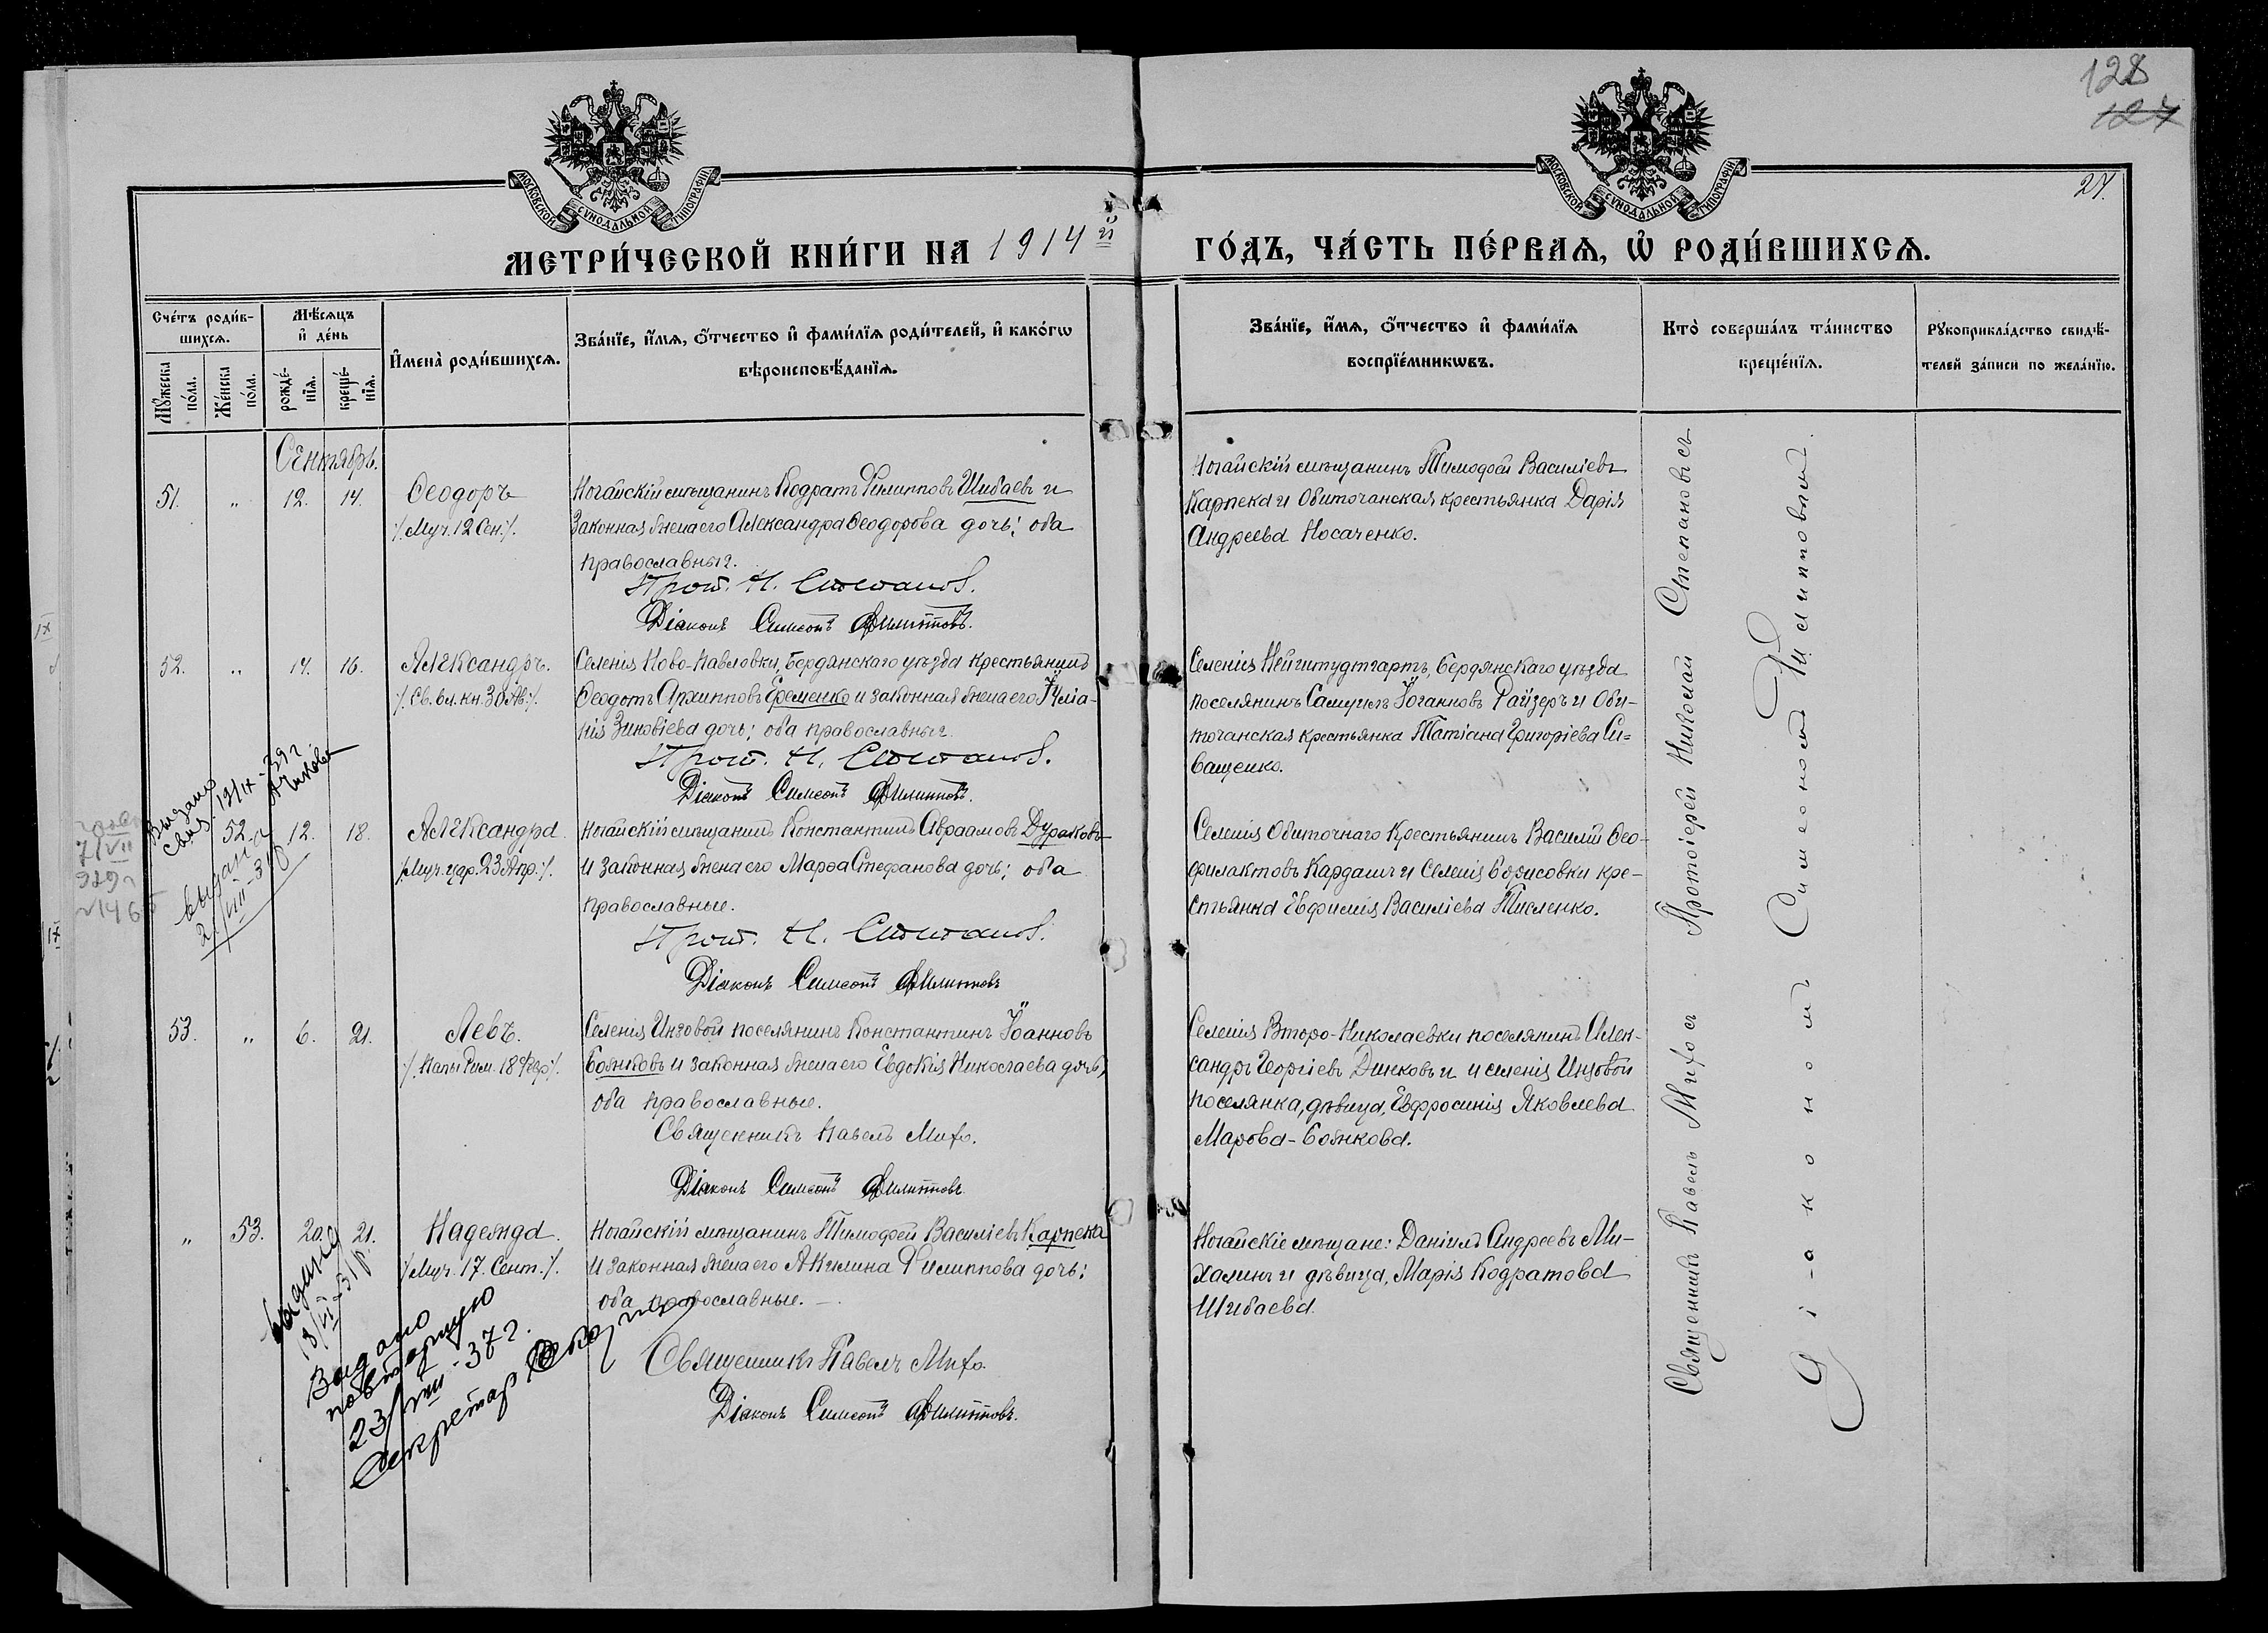 128
127
27.
МОСКОВСКОЙ СѴНОДАЛЬНОЙ ТИПОГРАФІИ
МОСКОВСКОЙ СѴНОДАЛЬНОЙ ТИПОГРАФІИ
МЕТРИ́ЧЕСКОЙ КНИ́ГИ НА 1914й ГО́ДЪ, ЧА́СТЬ ПЕ́РВАѦ, Ѡ҆ РОДИ́ВШИХСѦ.
Сче́тъ роди́в-
шихсѧ.
Мꙋ́жеска по́ла.
Же́нска по́ла.
Мѣ́сѧцъ
и҆ де́нь
рожде́-
нїѧ.
креще́-
нїѧ.
И҆мена̀ роди́вшихсѧ.
Зва́нїе, и҆́мѧ, ѻ҆́тчество и҆ фами́лїѧ роди́телей, и҆ како́гѡ
вѣроисповѣ́данїѧ.
Зва́нїе, и҆́мѧ, ѻ҆́тчество и҆ фами́лїѧ
воспрїе́мникѡвъ.
Кто̀ соверша́лъ та́инство
креще́нїѧ.
Рꙋкоприкла́дство свидѣ́-
телей за́писи по жела́нїю.
Сентябрь.
51. " 12. 14. Ѳеодоръ
/: Муч. 12 Сен :/.
Ногайскій мѣщанинъ Кодратъ Филипповъ Шибаевъ и
законная жена его Александра Ѳеодорова дочь; оба
православные.
Прот. Н. Степановъ.
Діаконъ Симеонъ Филипповъ.
Ногайскій мѣщанинъ Тимофей Василіевъ
Карпека и Обиточанская крестьянка Дарія
Андреева Носаченко.
52. " 14. 16. Александръ.
/: Св. бл. кн. 30 Ав :/.
Селенія Ново-Павловки, Бердянскаго уѣзда крестьянинъ
Ѳеодотъ Архипповъ Еременко и законная жена его Іуліа-
нія Зиновіева дочь; оба православные
Прот. Н. Степановъ.
Діаконъ Симеонъ Филипповъ.
Селенія Нейгштудтгартъ, Бердянскаго уѣзда
поселянинъ Самуилъ Іоганновъ Райзеръ и Оби-
точанская крестьянка Татіана Григоріева Си-
ващенко.
Выдано
свид. 13/IX-29г
" 52. 12. 18. Александра
/: Муч. цар. 23 Апр :/.
Ногайскій мѣщанинъ Константинъ Авраамовъ Дураковъ
и законная жена его Марѳа Стефанова дочь; оба
православные.
Прот. Н. Степановъ.
Діаконъ Симеонъ Филипповъ
Селенія Обиточнаго крестьянинъ Василій Ѳео-
филактовъ Кардашъ и Селенія Борисовки кре-
стьянка Евфимія Василіева Тисленко.
7/VII
929г
53. " 6. 21. Левъ.
/: Папы Рим. 18 Февр :/.
Селенія Инзовой поселянинъ Константинъ Іоанновъ
Божковъ и законная жена его Евдокія Николаева дочь,
оба православные.
Священникъ Павелъ Мифо.
Діаконъ Симеонъ Филипповъ
Селенія Второ-Николаевки поселянинъ Алек-
сандръ Георгіевъ Динковъ и и селенія Инзовой
поселянка, дѣвица, Евфросинія Яковлева
Марова-Божкова.
" 53. 20. 21. Надежда.
/: Муч. 17. Сент. :/.
Ногайскій мѣщанинъ Тимофей Василіевъ Карпека
и законная жена его Акилина Филиппова дочь;
оба православные.
Священникъ Павелъ Мифо.
Діаконъ Симеонъ Филипповъ.
Ногайскіе мѣщане: Даніилъ Андреевъ Ми-
халинъ и дѣвица, Марія Кодратова
Шибаева.
Видано
повторную
23/VIII-37г.
Секретар
Священникъ Павелъ Мифо съ Протоіерей Николай Степановъ съ
Діакономъ Симеономъ Филипповымъ.